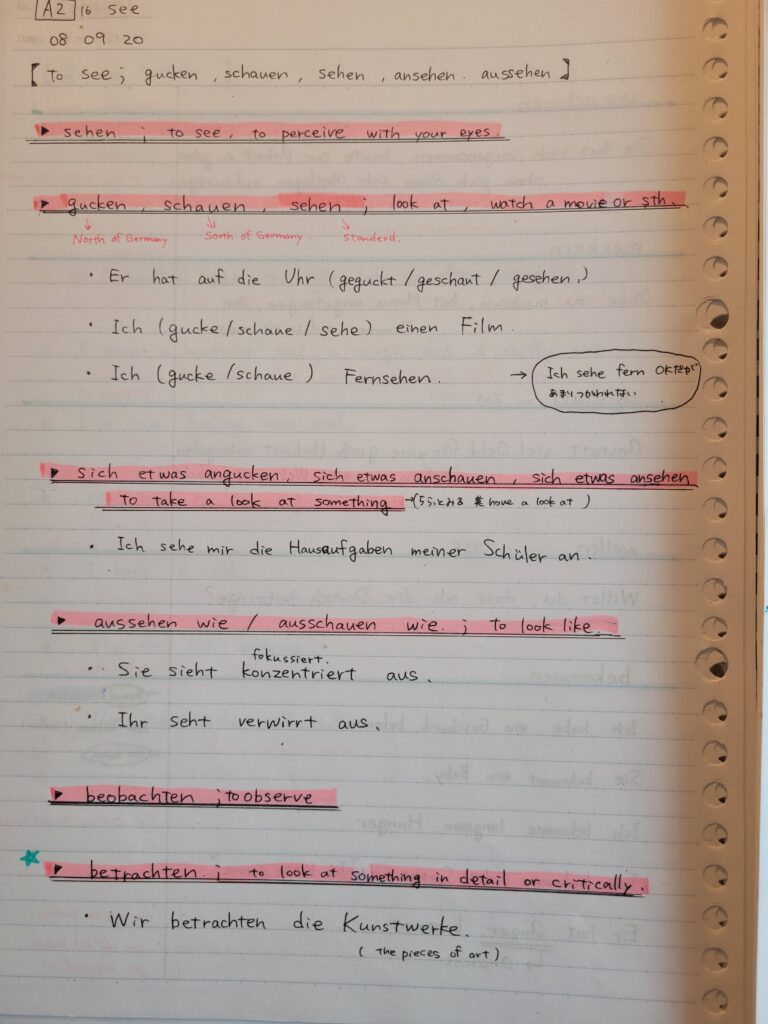 A2 16 see
08 09 20
【 to see ; gucken , schauen , sehen , ansehen . aussehen 】
▶ sehen ; to see , to perceive with your eyes .
▶ gucken , schauen , sehen ; look at , watch a movie or sth .
North of Germany South of Germany . Standerd .
・ Er hat auf die Uhr ( geguckt / geschaut / gesehen . )
・ Ich ( gucke / schaue / sehe ) einen Film .
・ Ich ( gucke / schaue ) Fernsehen . → Ich sehe fern OKだが
あまりつかわれない
▶ sich etwas angucken , sich etwas anschauen , sich etwas ansehen
to take a look at something → ( ちらっとみる 英 have a look at )
・ Ich sehe mir die Hausaufgaben meiner Schüler an .
▶ aussehen wie / ausschauen wie . ; to look like .
fokussiert .
・ Sie sieht konzentriert aus .
・ Ihr seht verwirrt aus .
▶ beobachten ; to observe
★ ▶ betrachten . ; to look at something in detail or critically .
・ Wir betrachten die Kunstwerke .
( the pieces of art )